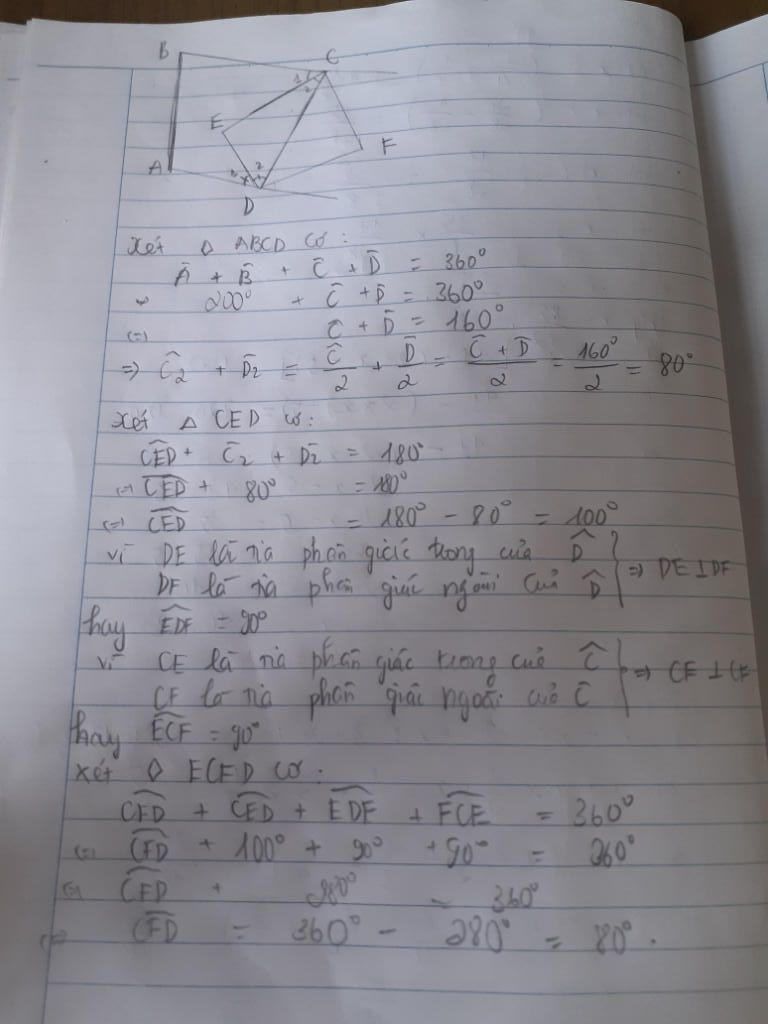 B
C
1
2
E
F
A
2
D
Xét ◇ ABCD có:
Â + B̂ + Ĉ + D̂ = 360°
200° + Ĉ + D̂ = 360°
(=) Ĉ + D̂ = 160°
=) Ĉ2 + D̂2 = Ĉ/2 + D̂/2 = (Ĉ + D̂)/2 = 160°/2 = 80°
Xét △ CED có:
CED + Ĉ2 + D̂2 = 180°
(=) CED + 80° = 180°
(=) CED = 180° - 80° = 100°
vì DE là tia phân giác trong của D̂
DF là tia phân giác ngoài của D̂ } =) DE ⊥ DF
hay EDF = 90°
vì CE là tia phân giác trong của Ĉ
CF là tia phân giác ngoài của Ĉ } =) CE ⊥ CF
hay ECF = 90°
xét ◇ ECFD có:
CFD + CED + EDF + FCE = 360°
(=) CFD + 100° + 90° + 90° = 360°
(=) CFD + 280° = 360°
(=) CFD = 360° - 280° = 80°.